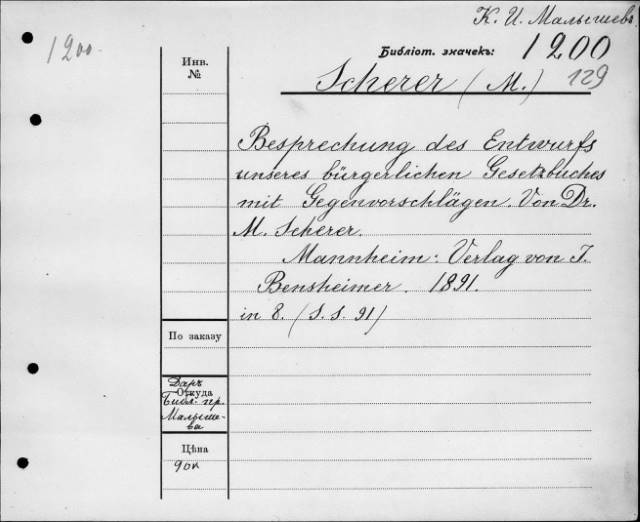 К. И. Малышевъ
1200
Библіот. значекъ: 1200
Инв. №
Scherer (M.) 129
Besprechung des Entwurfs
unseres bürgerlichen Gesetzbuches
mit Gegenvorschlägen. Von Dr.
M. Scherer.
Mannheim: Verlag von J.
Bensheimer. 1891.
in 8. (S.S. 91)
По заказу
Даръ
Откуда
Библ. пр.
Малыше-
ва
Цѣна
90к